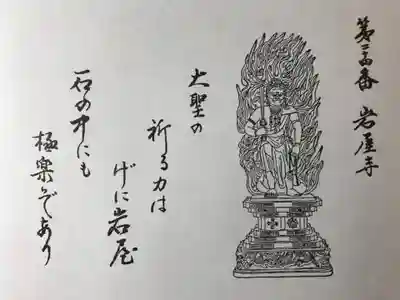 第番 岩屋寺
大聖の
祈る力は
げに岩屋
石の中にも
極楽ぞあり